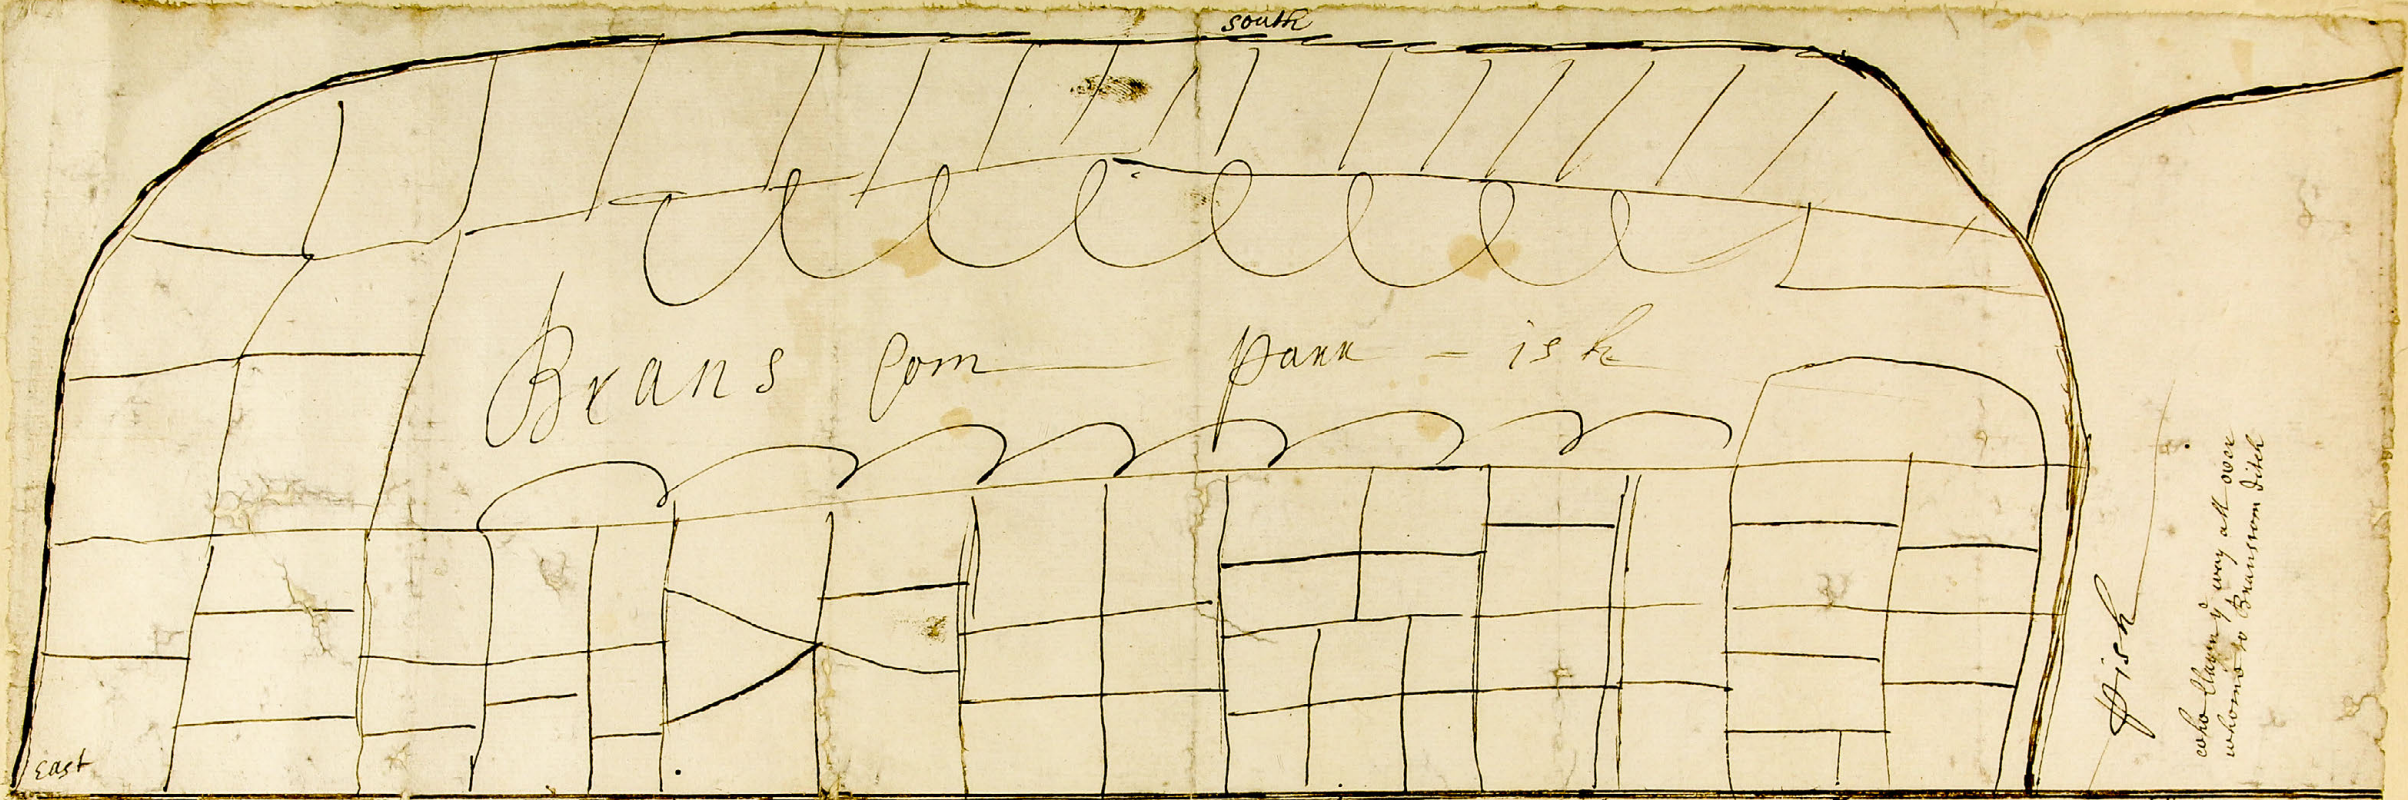 south
Brans Com parr - ish
East
pish
who Claym ye way all over
whome to Branscom ditch